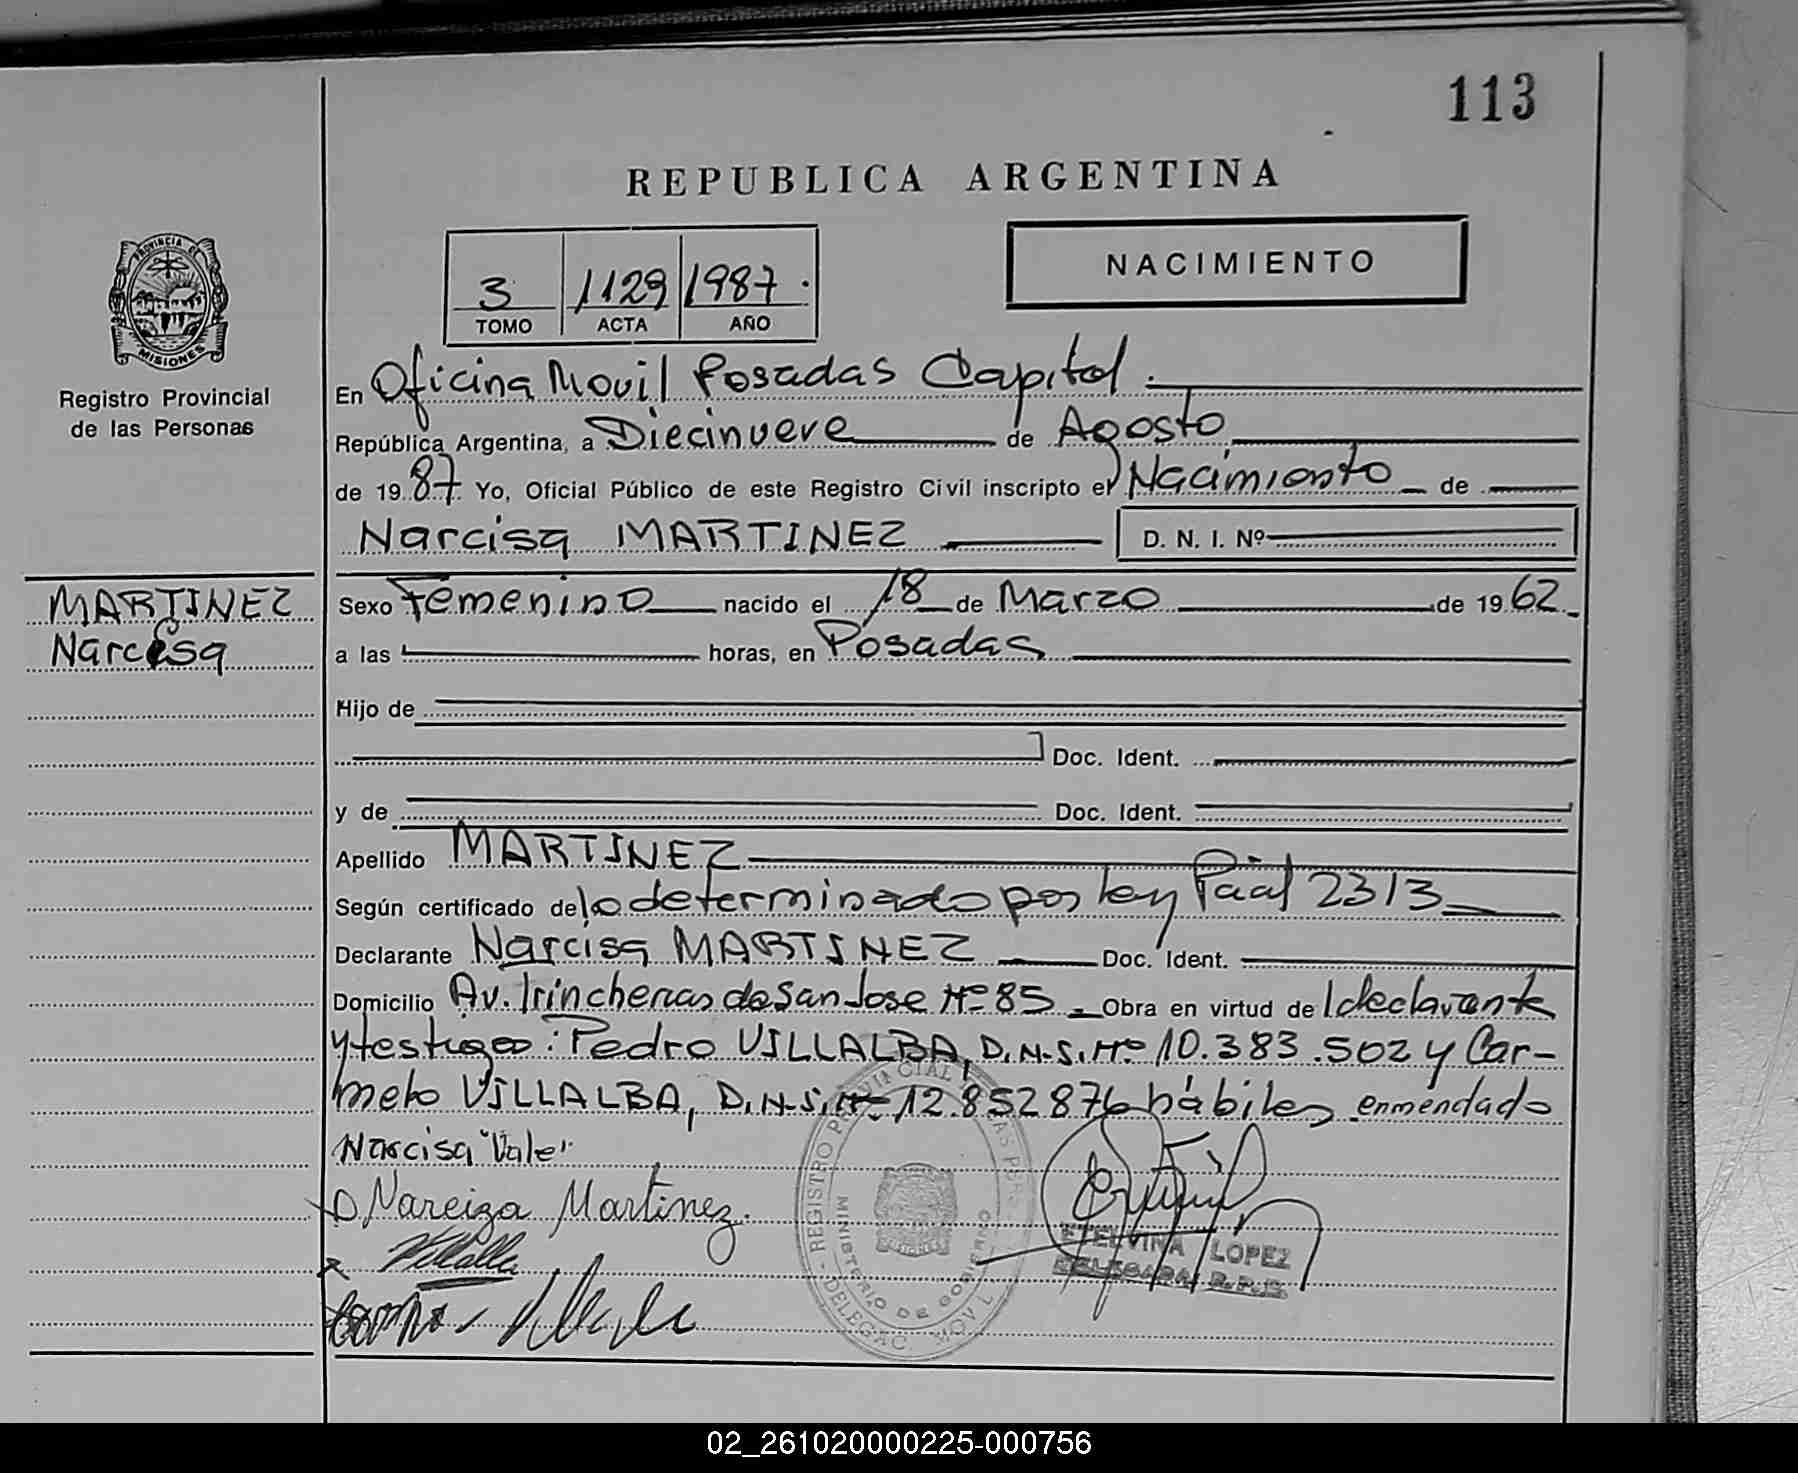 113
REPUBLICA ARGENTINA
PROVINCIA DE
MISIONES
Registro Provincial
de las Personas
3 1129 1987.
TOMO ACTA AÑO
NACIMIENTO
En Oficina Movil Posadas Capital.
República Argentina, a Diecinueve de Agosto
de 19 87. Yo, Oficial Público de este Registro Civil inscripto el Nacimiento de
Narcisa MARTINEZ D. N. I. Nº
MARTINEZ
Narcisa
Sexo Femenino nacido el 18 de Marzo de 19 62
a las horas, en Posadas
Hijo de
Doc. Ident.
y de Doc. Ident.
Apellido MARTINEZ
Según certificado de lo determinado por ley Pcial 2313
Declarante Narcisa MARTINEZ Doc. Ident.
Domicilio Av. Trincheras de San Jose Nº 85 Obra en virtud de l declarante
y testigos: Pedro VILLALBA, D.N.I. Nº 10.383.502 y Car-
melo VILLALBA, D.N.I. Nº 12.852876 hábiles enmendado
Narcisa "Vale"
Nareiza Martinez.
Villalba
ETELVINA LOPEZ
DELEGADA R.P.P.
REGISTRO PROVINCIAL DE LAS PERSONAS - DELEGAC. MOVIL
MINISTERIO DE GOBIERNO
02_261020000225-000756